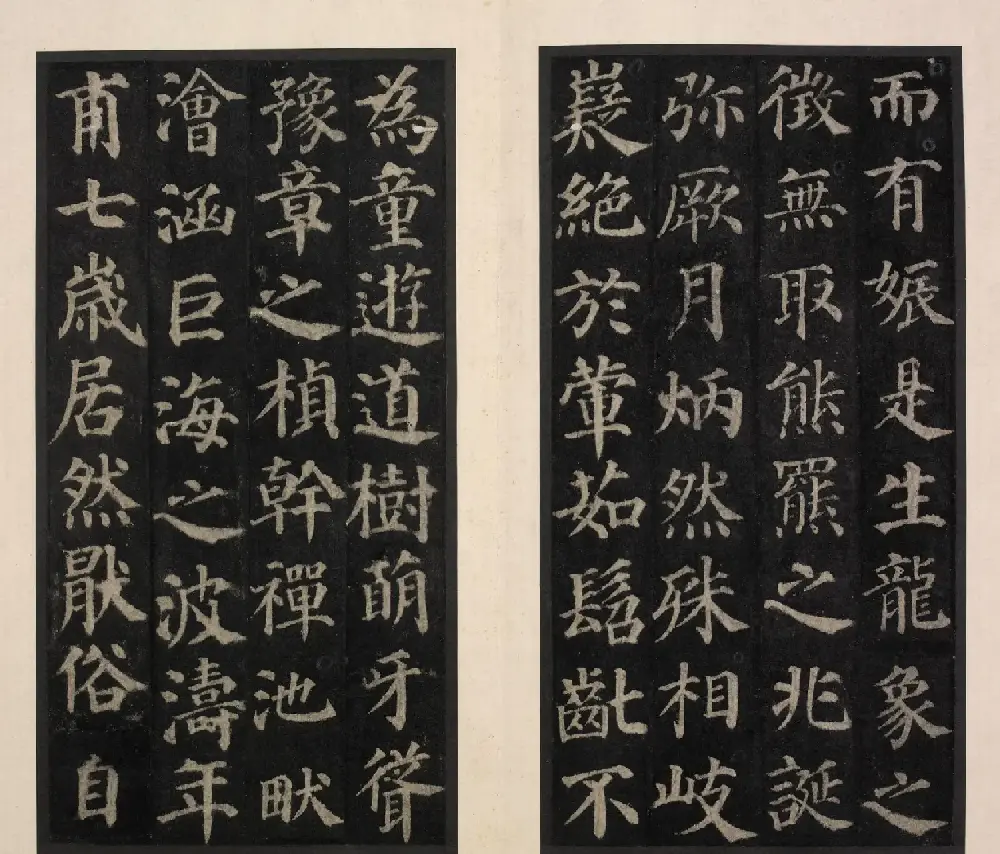 而有娠是生龍象之
徵無取熊羆之兆誕
弥厥月炳然殊相岐
嶷絶於葷茹髫齔不
為童遊道樹萌牙聳
豫章之楨幹禪池畎
澮涵巨海之波濤年
甫七歲居然厭俗自